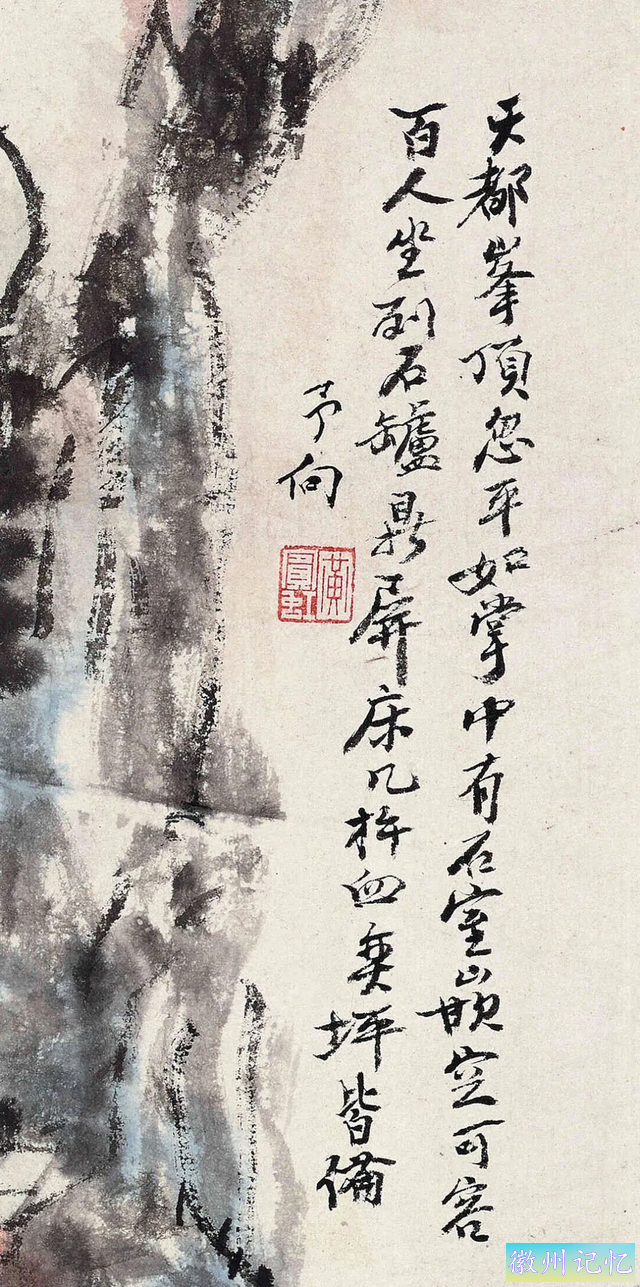 天都峯頂忽平如掌中有石室嵌空可容
百人坐列石罏鼎屏床几杵血奕坪皆備
予向
黃賓虹
徽州记忆